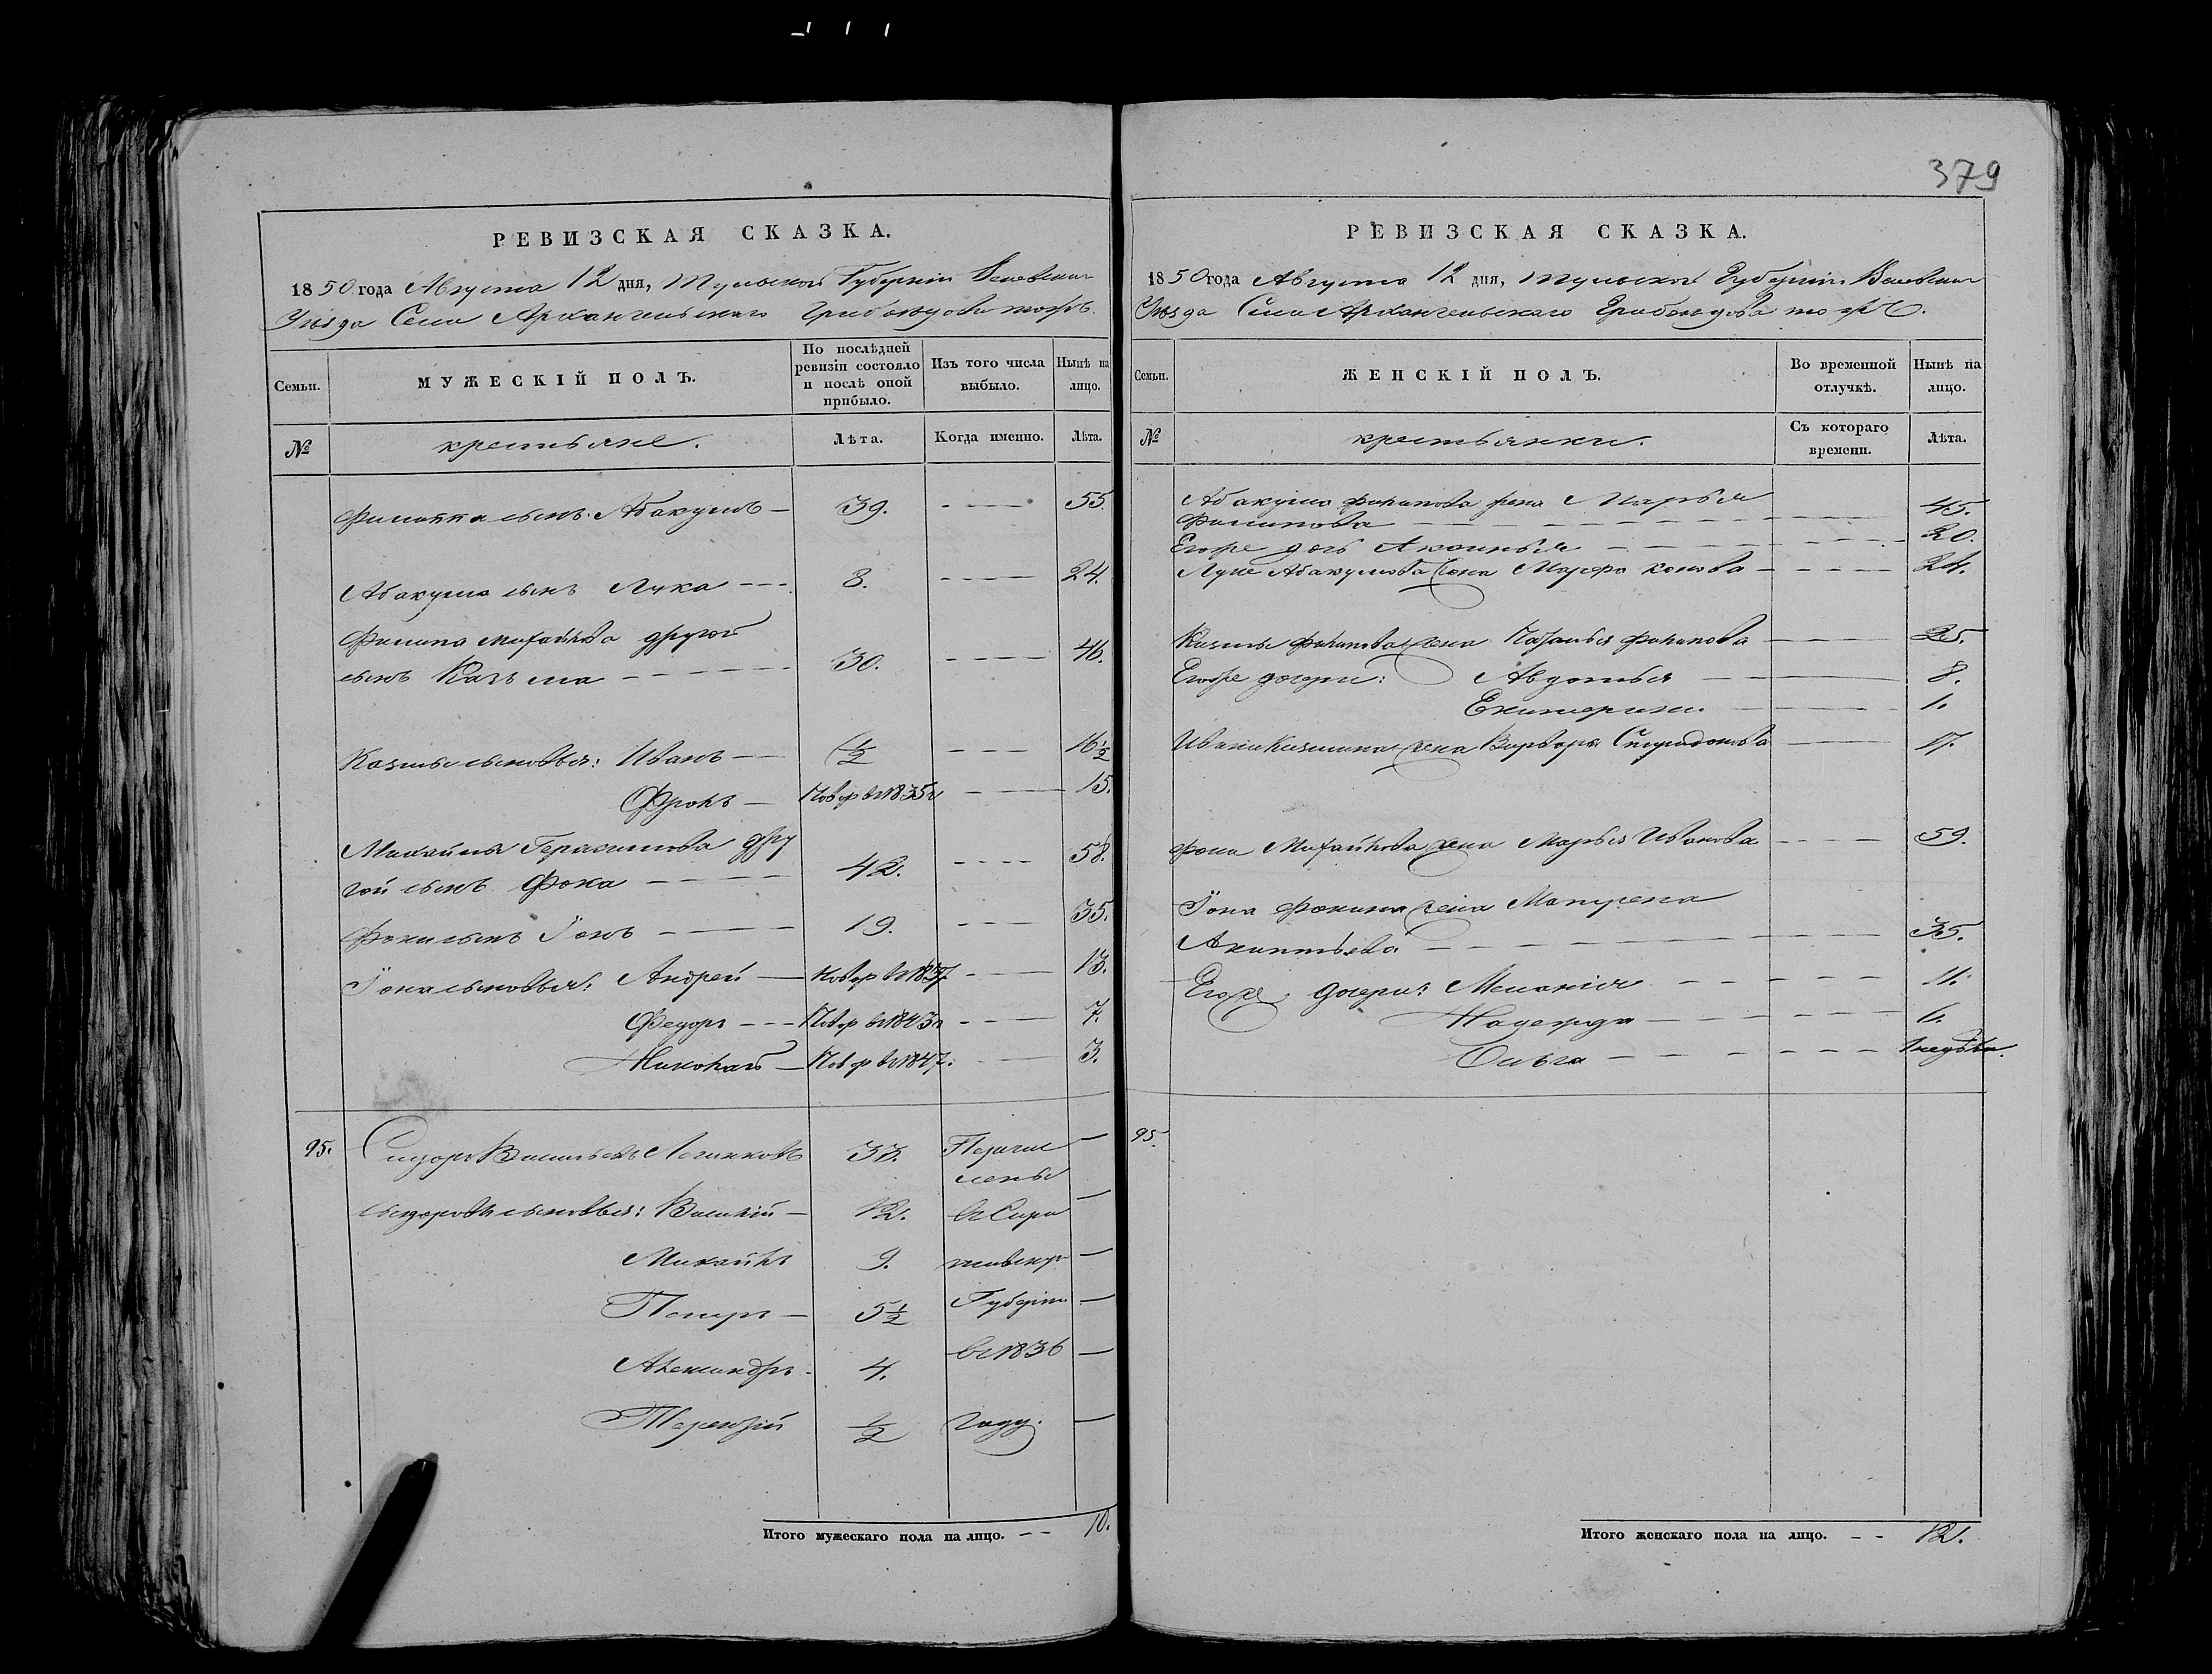 РЕВИЗСКАЯ СКАЗКА.
1850 года Августа 12 дня, Тульской Губернiи Белевскаго
Уѣзда Села Архангельскаго Грибоѣдова тожъ.
Семьи.
МУЖЕСКIЙ ПОЛЪ.
По послѣдней ревизiи состояло и послѣ оной прибыло.
Изъ того числа выбыло.
Нынѣ на лицо.
№
крестьяне.
Лѣта.
Когда именно.
Лѣта.
Филиппа сынъ Абакумъ 39. 55.
Абакума сынъ Лука 8. 24.
Филипа Михайлова другой
сынъ Казьма 30. 46.
Козмы сыновья: Иванъ ½ 16½
Фролъ Новор въ 1835 г 15.
Михайлы Герасимова дру
гой сынъ Фока 42. 58.
Фоки сынъ Iонъ 19. 35.
Iона сыновья: Андрей Новор въ 1837. 13.
Федоръ Новор въ 1843 г 7.
Николай Новор въ 1847. 3.
95. Сидоръ Васильевъ Логинковъ 33. Перечис
лены
Сидоровы сыновья: Василiй 12. въ Сара
Михайлъ 9. товскую
Петръ 5½ Губернiю
Александръ 4. въ 1836
Терентiй ½ году.
Итого мужескаго пола на лицо. 10.
379
РЕВИЗСКАЯ СКАЗКА.
1850 года Августа 12 дня, Тульской Губернiи Белевскаго
Уѣзда Села Архангельскаго Грибоѣдова тожъ.
Семьи.
ЖЕНСКIЙ ПОЛЪ.
Во временной отлучкѣ.
Нынѣ на лицо.
№
крестьянки.
Съ котораго времени.
Лѣта.
Абакума Филипова жена Марья
Филипова 45.
Егоже дочь Аксинья 20.
Луки Абакумова жена Марфа 24.
Казмы Филипова жена Наталья Филипова 35.
Егоже дочери: Авдотья 8.
Екатерина 1.
Ивана Казмина жена Варвара Спиридонова 17.
Фоки Михайлова жена Марья Иванова 59.
Iона Фокина жена Матрена
35.
Егоже дочери: Меланiя 11.
Надежда 6.
Ольга 1 недѣли.
95.
Итого женскаго пола на лицо. 12.